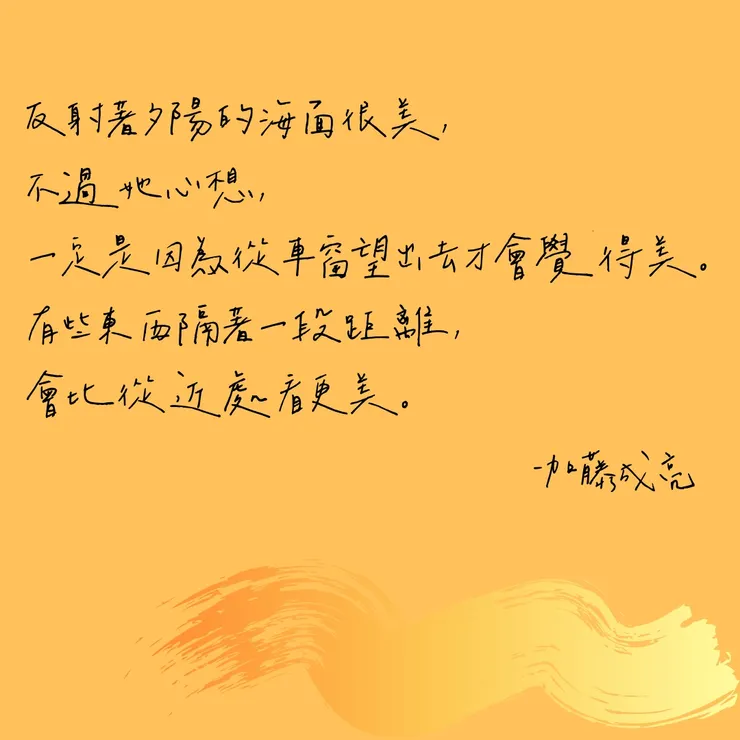 反射著夕陽的海面很美，
不過她心想，
一定是因為從車窗望出去才會覺得美。
有些東西隔著一段距離，
會比從近處看更美。
—加藤成亮